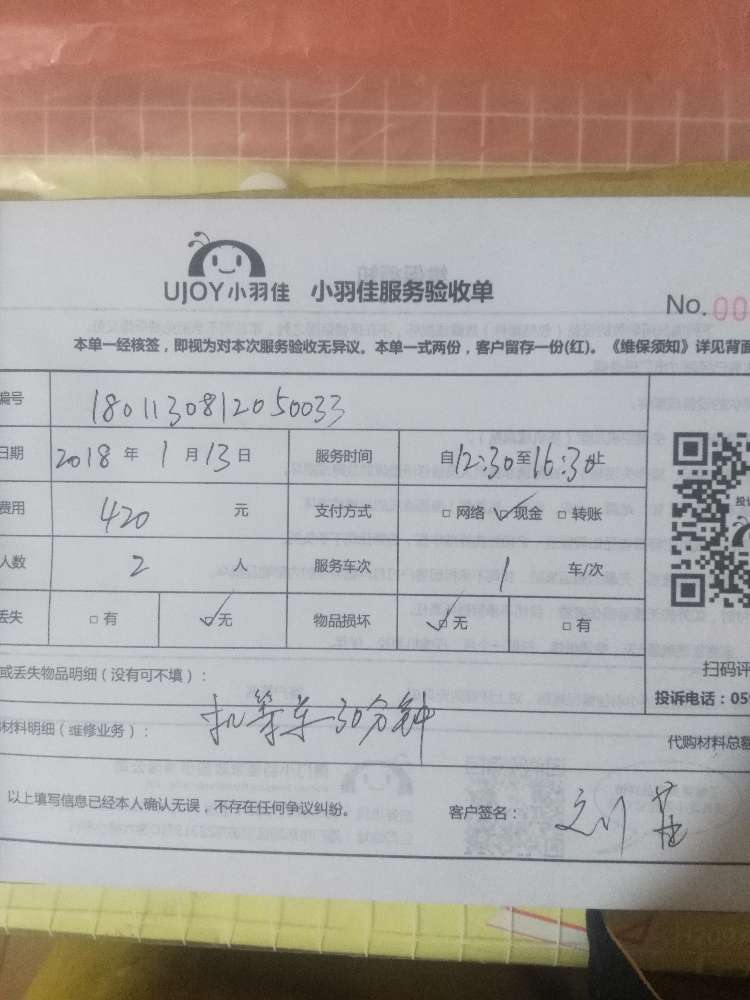 UJOY小羽佳 小羽佳服务验收单
No.00
本单一经核签，即视为对本次服务验收无异议。本单一式两份，客户留存一份(红)。《维保须知》详见背面
编号 1801130812050033
日期 2018 年 1 月 13 日 服务时间 自12:30至16:30止
费用 420 元 支付方式 □ 网络 ☑ 现金 □ 转账
人数 2 人 服务车次 1 车/次
丢失 □ 有 ☑ 无 物品损坏 ☑ 无 □ 有
或丢失物品明细（没有可不填）：
扫码评
投诉电话：059
材料明细（维修业务）： 扣等车30分钟
代购材料总额
以上填写信息已经本人确认无误，不存在任何争议纠纷。 客户签名：